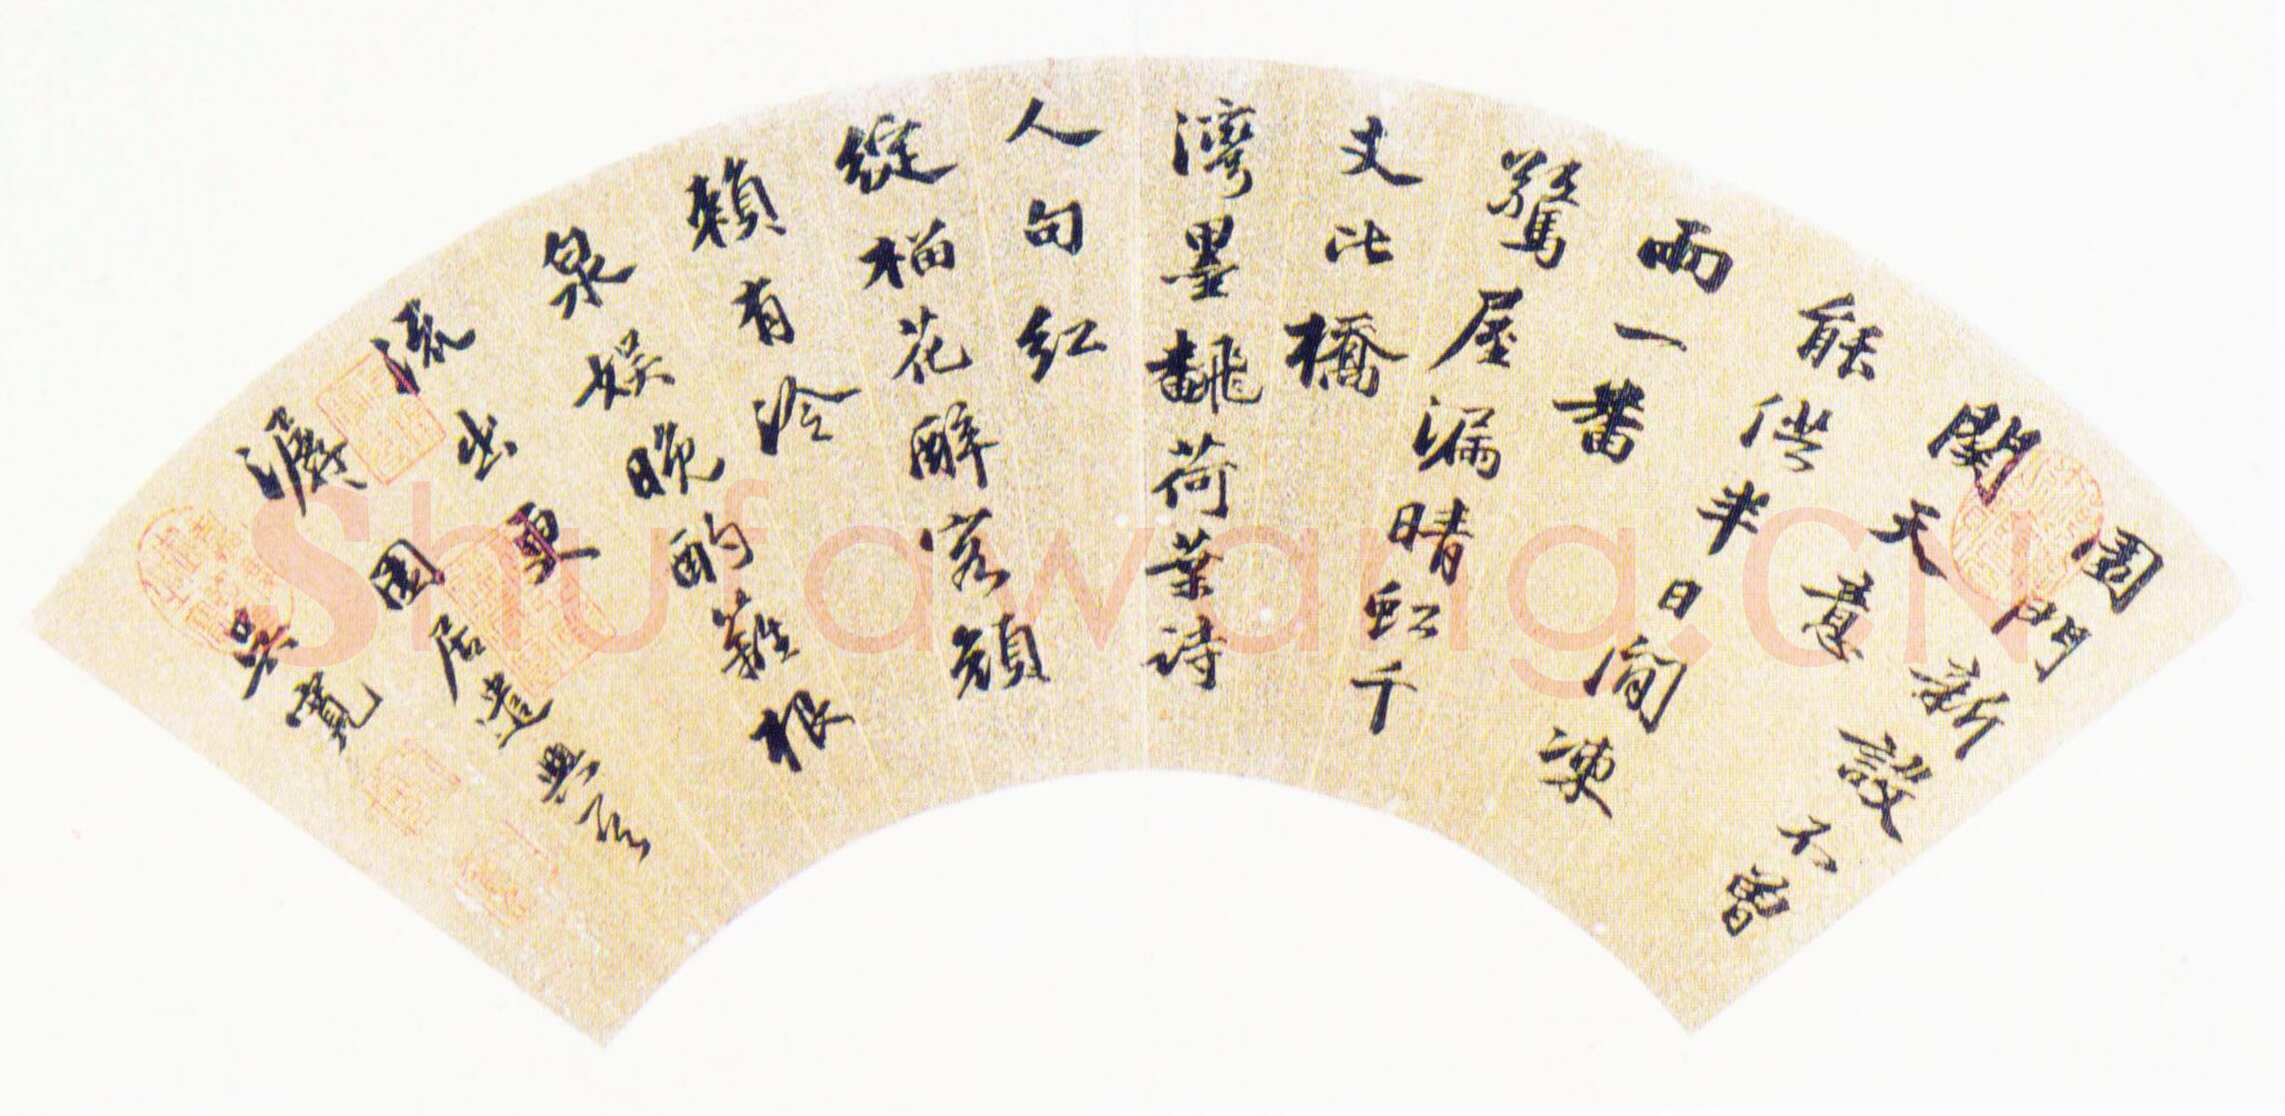 園門新設不曾
関天意
能供半日間凍
雨一番
驚屋漏晴虹千
丈比橋
灣墨飜荷葉詩
人句紅
綻榴花醉客顏
賴有冷
泉娛晚酌根
流出更
潺 園居遣興
吳寬
Shufawang.CN